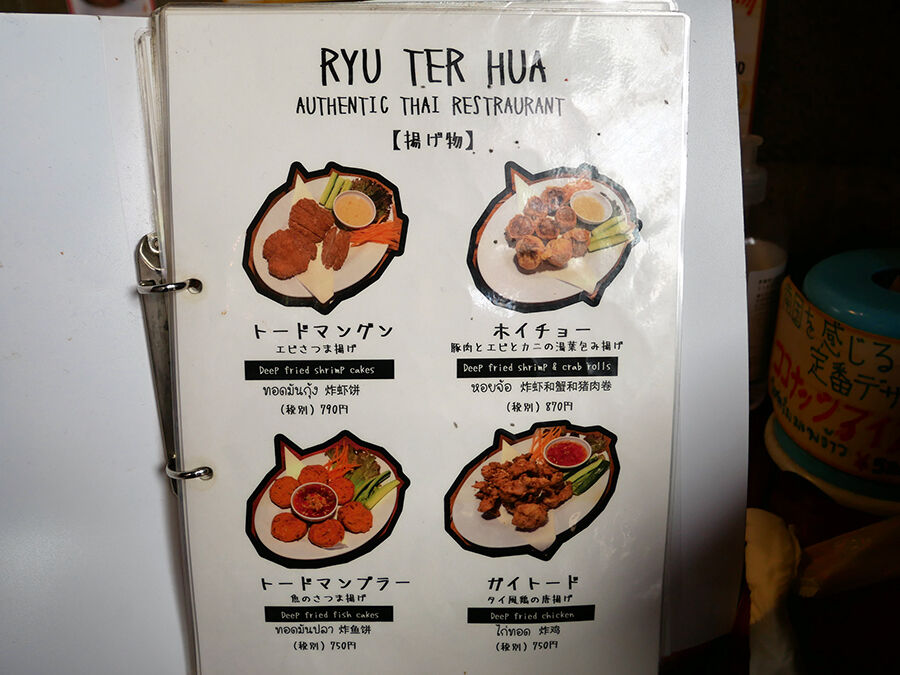 RYU TER HUA
AUTHENTIC THAI RESTRAURANT
【揚げ物】
トードマングン
エビさつま揚げ
Deep fried shrimp cakes
ทอดมันกุ้ง 炸虾饼
(税別) 790円
ホイチョー
豚肉とエビとカニの湯葉包み揚げ
Deep fried shrimp & crab rolls
หอยจ้อ 炸虾和蟹和猪肉卷
(税別) 870円
トードマンプラー
魚のさつま揚げ
Deep fried fish cakes
ทอดมันปลา 炸鱼饼
(税別) 750円
ガイトード
タイ風鶏の唐揚げ
Deep fried chicken
ไก่ทอด 炸鸡
(税別) 750円
を感じる
定番デザ
ココナッツアイ